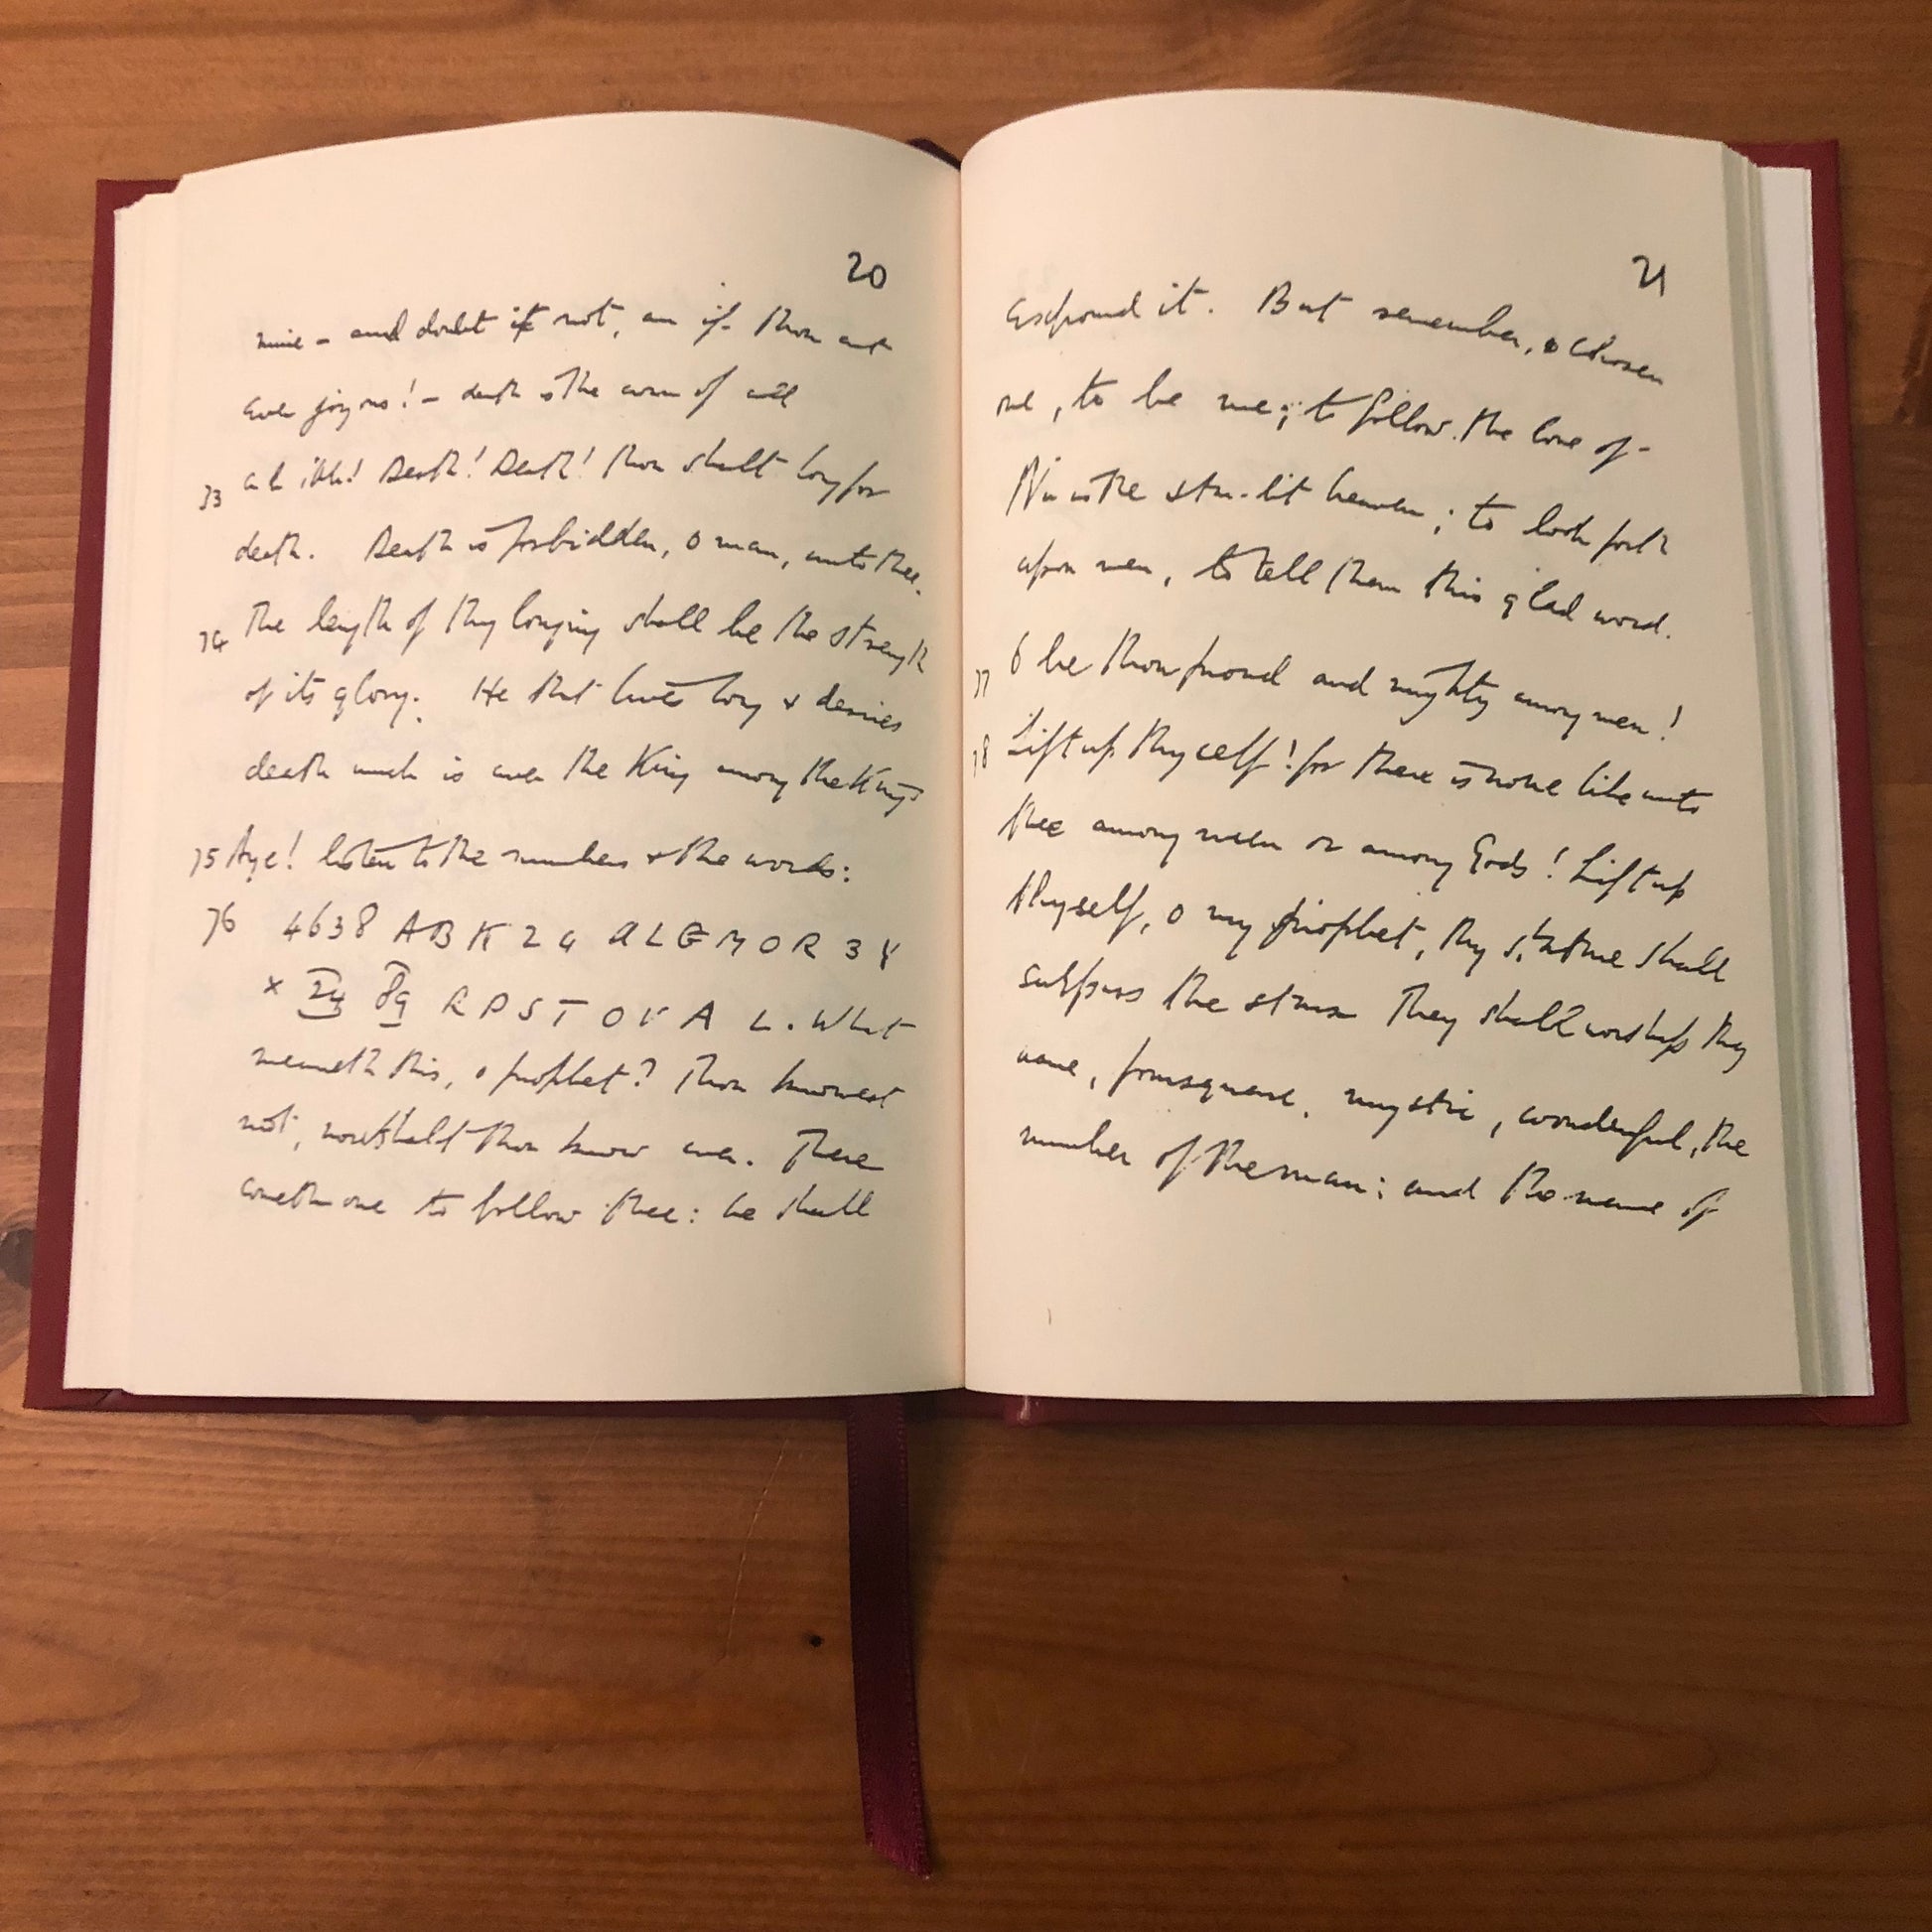 20
mine — and doubt it not, an if thou art
ever joyous! — death is the crown of all
73 Ah! Ah! Death! Death! thou shalt long for
death. Death is forbidden, o man, unto thee.
74 The length of thy longing shall be the strength
of its glory. He that lives long & desires
death much is ever the King among the Kings
75 Aye! listen to the numbers & the words:
76 4638 ABK 24 ALGMOR 3Y
x 24 89 RPSTOVAL. What
meaneth this, o prophet? Thou knowest
not, nor shalt thou know ever. There
cometh one to follow thee: he shall
21
expound it. But remember, o chosen
one, to be me; to follow the love of
Nu in the star-lit heaven; to look forth
upon men, to tell them this glad word.
77 O be thou proud and mighty among men!
78 Lift up thyself! for there is none like unto
thee among men or among Gods! Lift up
thyself, o my prophet, thy stature shall
surpass the stars. They shall worship thy
name, foursquare, mystic, wonderful, the
number of the man; and the name of